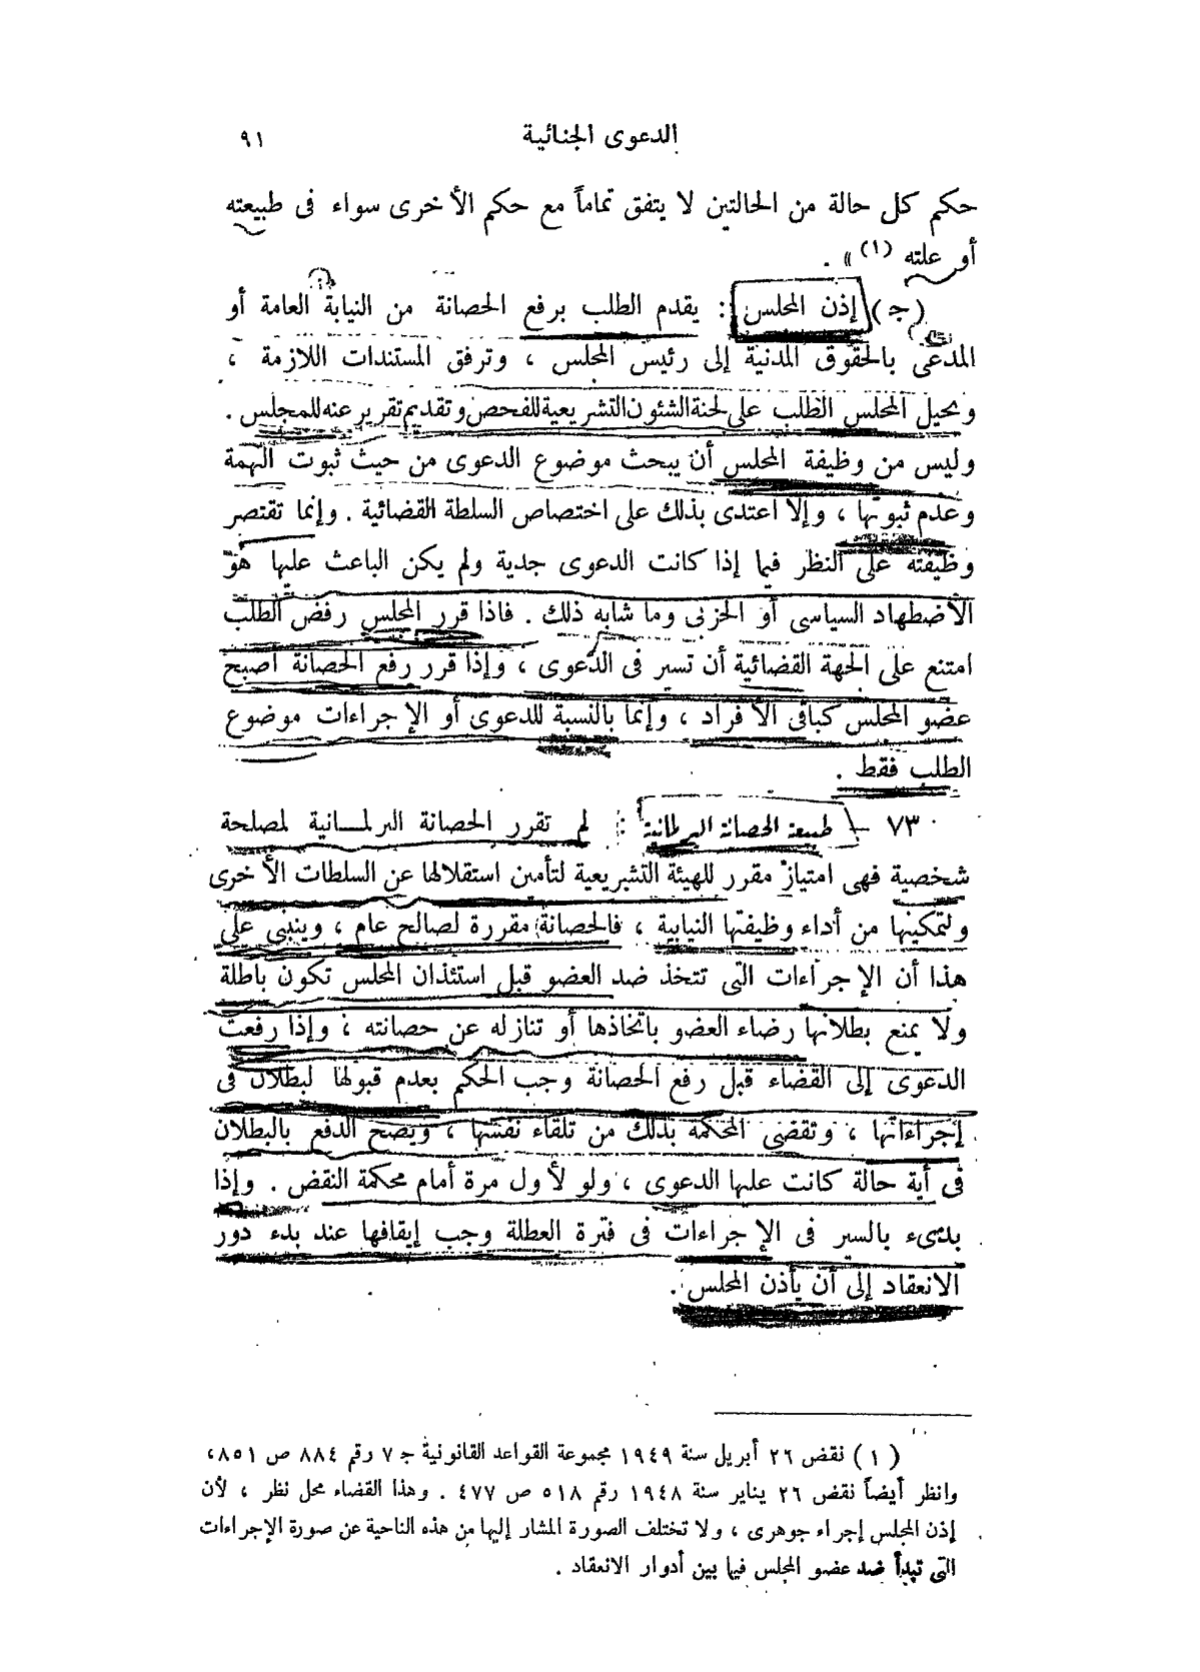 الدعوى الجنائية ٩١
حكم كل حالة من الحالتين لا يتفق تماماً مع حكم الأخرى سواء فى طبيعته
أو علته (١) » .
(ج) إذن المجلس : يقدم الطلب برفع الحصانة من النيابة العامة أو
المدعى بالحقوق المدنية إلى رئيس المجلس ، وترفق المستندات اللازمة ،
ويحيل المجلس الطلب على لجنة الشئون التشريعية للفحص وتقديم تقرير عنه للمجلس .
وليس من وظيفة المجلس أن يبحث موضوع الدعوى من حيث ثبوت الهمة
وعدم ثبوتها ، وإلا اعتدى بذلك على اختصاص السلطة القضائية . وإنما تقتصر
وظيفته على النظر فيما إذا كانت الدعوى جدية ولم يكن الباعث عليها هو
الأضطهاد السياسى أو الحزبى وما شابه ذلك . فاذا قرر المجلس رفض الطلب
امتنع على الجهة القضائية أن تسير فى الدعوى ، وإذا قرر رفع الحصانة أصبح
عضو المجلس كباقى الأفراد ، وإنما بالنسبة للدعوى أو الإجراءات موضوع
الطلب فقط .
٧٣ – طبيعة الحصانة البرلمانية : لم تقرر الحصانة البرلمانية لمصلحة
شخصية فهى امتياز مقرر للهيئة التشريعية لتأمين استقلالها عن السلطات الأخرى
ولتمكينها من أداء وظيفتها النيابية ، فالحصانة مقررة لصالح عام ، وينبنى على
هذا أن الإجراءات التى تتخذ ضد العضو قبل استئذان المجلس تكون باطلة
ولا يمنع بطلانها رضاء العضو باتخاذها أو تنازله عن حصانته ، وإذا رفعت
الدعوى إلى القضاء قبل رفع الحصانة وجب الحكم بعدم قبولها لبطلان فى
إجراءاتها ، وتقضى المحكمة بذلك من تلقاء نفسها ، ويصح الدفع بالبطلان
فى أية حالة كانت عليها الدعوى ، ولو لأول مرة أمام محكمة النقض . وإذا
بدىء بالسير فى الإجراءات فى فترة العطلة وجب إيقافها عند بدء دور
الانعقاد إلى أن يأذن المجلس .
(١) نقض ٢٦ أبريل سنة ١٩٤٩ مجموعة القواعد القانونية ج ٧ رقم ٨٨٤ ص ٨٥١ ،
وانظر أيضاً نقض ٢٦ يناير سنة ١٩٤٨ رقم ٥١٨ ص ٤٧٧ . وهذا القضاء محل نظر ، لأن
إذن المجلس إجراء جوهرى ، ولا تختلف الصورة المشار إليها من هذه الناحية عن صورة الإجراءات
التى تبدأ ضد عضو المجلس فيما بين أدوار الانعقاد .